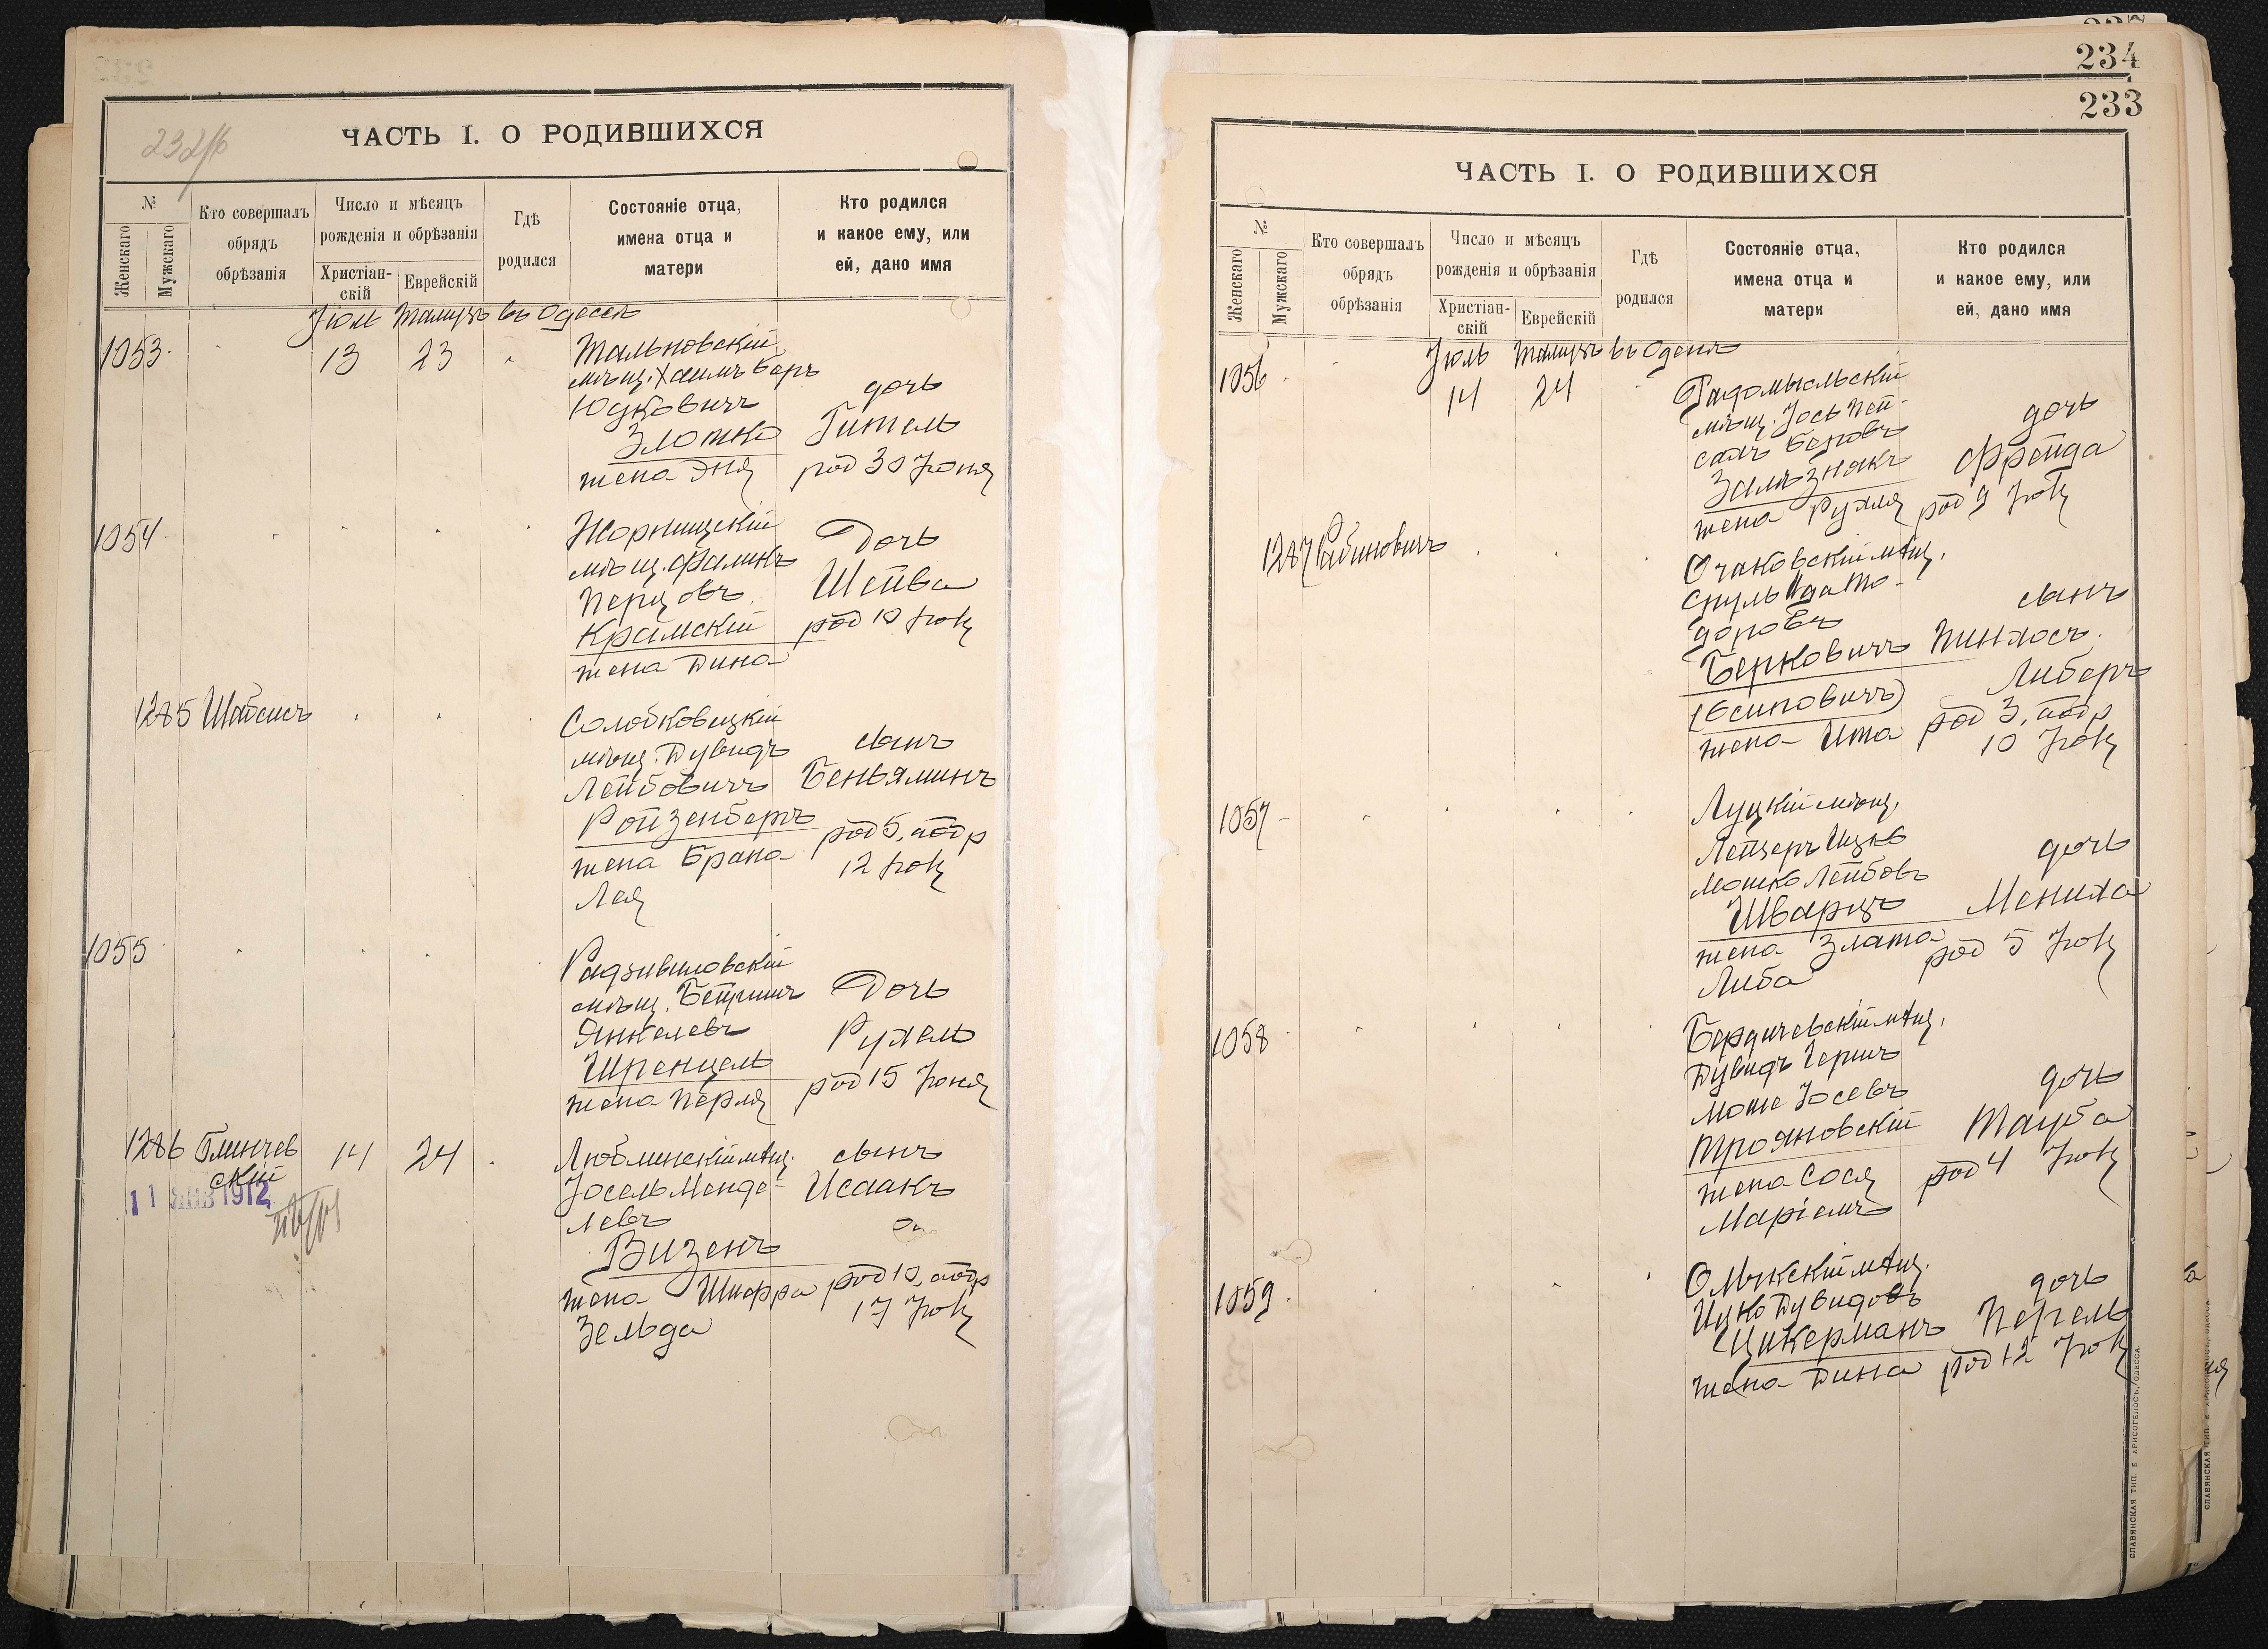 232/б
ЧАСТЬ I. О РОДИВШИХСЯ
№
Женскаго
Мужскаго
Кто совершалъ
обрядъ
обрѣзанія
Число и мѣсяцъ
рожденія и обрѣзанія
Христіан-
скій
Еврейскій
Гдѣ
родился
Состояніе отца,
имена отца и
матери
Кто родился
и какое ему, или
ей, дано имя
Іюль Тамузъ въ Одессѣ
1053
13 23
Тальновскій
мѣщ. Хаимъ Беръ
Юдковичъ
Злотко
жена Эня
дочь
Гитель
род 30 Іюня
1054
Жорнищскій
мѣщ. Фаликъ
Перцовъ
Крамскій
жена Дина
Дочь
Шейва
род 10 Іюля
1285 Шабсисъ
Солобковецкій
мѣщ. Дувидъ
Лейбовичъ
Ройзенберъ
жена Брана
Лея
сынъ
Беньяминъ
род 5, обр
12 Іюля
1055
Радзивиловскій
мѣщ.
Янкелевъ
Шренцель
жена Перля
Дочь
Рухель
род 15 Іюня
1286
скій
14 24
Люблинскій мѣщ.
Іосель Менде-
левъ
Визенъ
жена Шифра
Зельда
сынъ
Исаакъ
род 10, обр
17 Іюля
11 ЯНВ 1912
234
233
ЧАСТЬ I. О РОДИВШИХСЯ
№
Женскаго
Мужскаго
Кто совершалъ
обрядъ
обрѣзанія
Число и мѣсяцъ
рожденія и обрѣзанія
Христіан-
скій
Еврейскій
Гдѣ
родился
Состояніе отца,
имена отца и
матери
Кто родился
и какое ему, или
ей, дано имя
Іюль Тамузъ въ Одессѣ
1056
14 24
Радомысльскій
мѣщ. Іось Пей-
сахъ Беровъ
Зальзнакъ
жена Рухля
дочь
Фрейда
род 9 Іюля
1287 Рабиновичъ
Очаковскій мѣщ.
Сруль Ида То-
доровъ
Берковичъ
(Осиповичъ)
жена Ита
сынъ
Пинхосъ
Либеръ
род 3, обр
10 Іюля
1057
Луцкій мѣщ.
Лейзеръ Ицко
Мошко Лейбовъ
Шварцъ
жена Злата
Либа
дочь
Мениха
род 5 Іюля
1058
Бердичевскій мѣщ.
Дувидъ Гершъ
Моше Іосевъ
Трояновскій
жена Сося
Маріемъ
дочь
Тауба
род 4 Іюля
1059
Олыкскій мѣщ.
Ицко Дувидовъ
Цукерманъ
жена Дина
дочь
Перель
род 12 Іюля
СЛАВЯНСКАЯ ТИП. Е. ХРИСОГЕЛОСЪ, ОДЕССА.